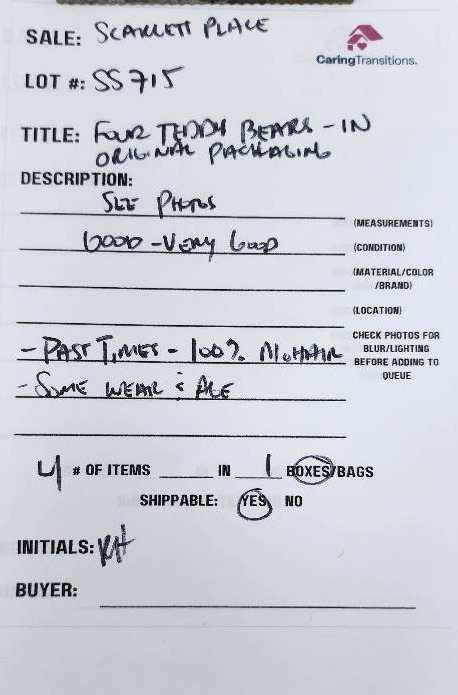 SALE: SCARLETT PLACE
CaringTransitions.
LOT #: SS715
TITLE: FOUR TEDDY BEARS - IN
ORIGINAL PACKAGING
DESCRIPTION:
SEE PHOTOS
(MEASUREMENTS)
GOOD - VERY GOOD
(CONDITION)
(MATERIAL/COLOR
/BRAND)
(LOCATION)
- PAST TIMES - 100% MOHAIR
- SOME WEAR & AGE
CHECK PHOTOS FOR
BLUR/LIGHTING
BEFORE ADDING TO
QUEUE
4 # OF ITEMS ____ IN 1 BOXES/BAGS
SHIPPABLE: YES NO
INITIALS: KH
BUYER: